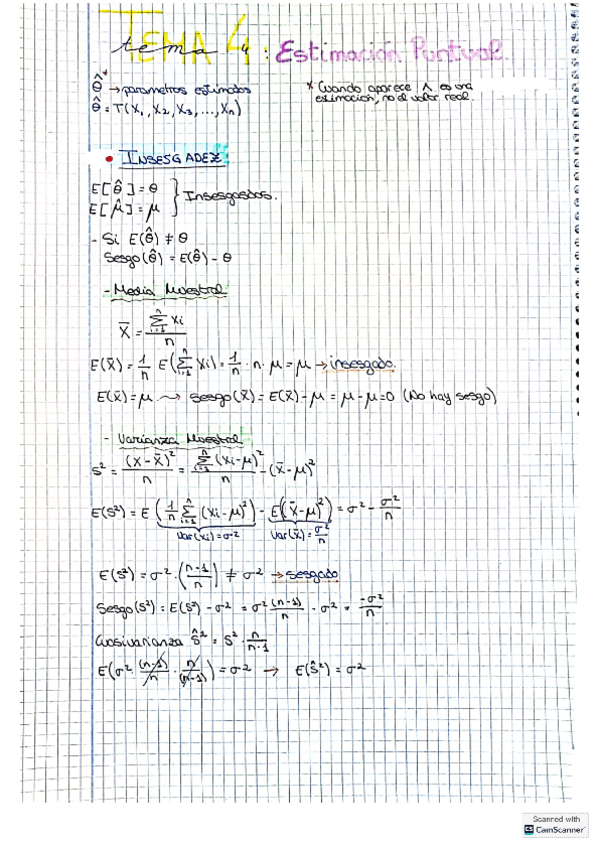 TEMA 4
tema 4: Estimación Puntual.
θ̂* → parametros estimados
* Cuando aparece ∧ es una estimación, no el valor real.
θ̂ = T(X₁, X₂, X₃, ..., Xn)
• INSESGADEZ
E[θ̂] = θ
E[μ̂] = μ } Insesgados.
- Si E(θ̂) ≠ θ
Sesgo(θ̂) = E(θ̂) - θ
- Media Muestral
X̄ = Σⁿᵢ₌₁ Xi / n
E(X̄) = 1/n E(Σⁿᵢ₌₁ Xi) = 1/n · n · μ = μ → insesgado.
E(X̄) = μ ⇝ Sesgo(X̄) = E(X̄) - μ = μ - μ = 0 (No hay sesgo)
- Varianza Muestral
S² = (X - X̄)² / n = Σⁿᵢ₌₁ (Xi - μ)² / n - (X̄ - μ)²
E(S²) = E (1/n Σⁿᵢ₌₁ (Xi - μ)²) - E((X̄ - μ)²) = σ² - σ²/n
Var(Xi) = σ² Var(X̄) = σ²/n
E(S²) = σ² · (n-1/n) ≠ σ² → sesgado
Sesgo(S²) = E(S²) - σ² = σ² (n-1)/n - σ² = -σ²/n
Cuasivarianza Ŝ² = S² · n/n-1
E(σ² · (n-1)/n · n/(n-1)) = σ² → E(Ŝ²) = σ²
Scanned with
CS CamScanner